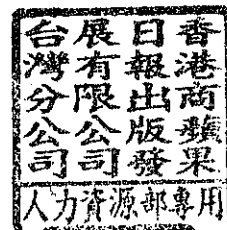 香港商蘋果
日報出版發
展有限公司
台灣分公司
人力資源部專用